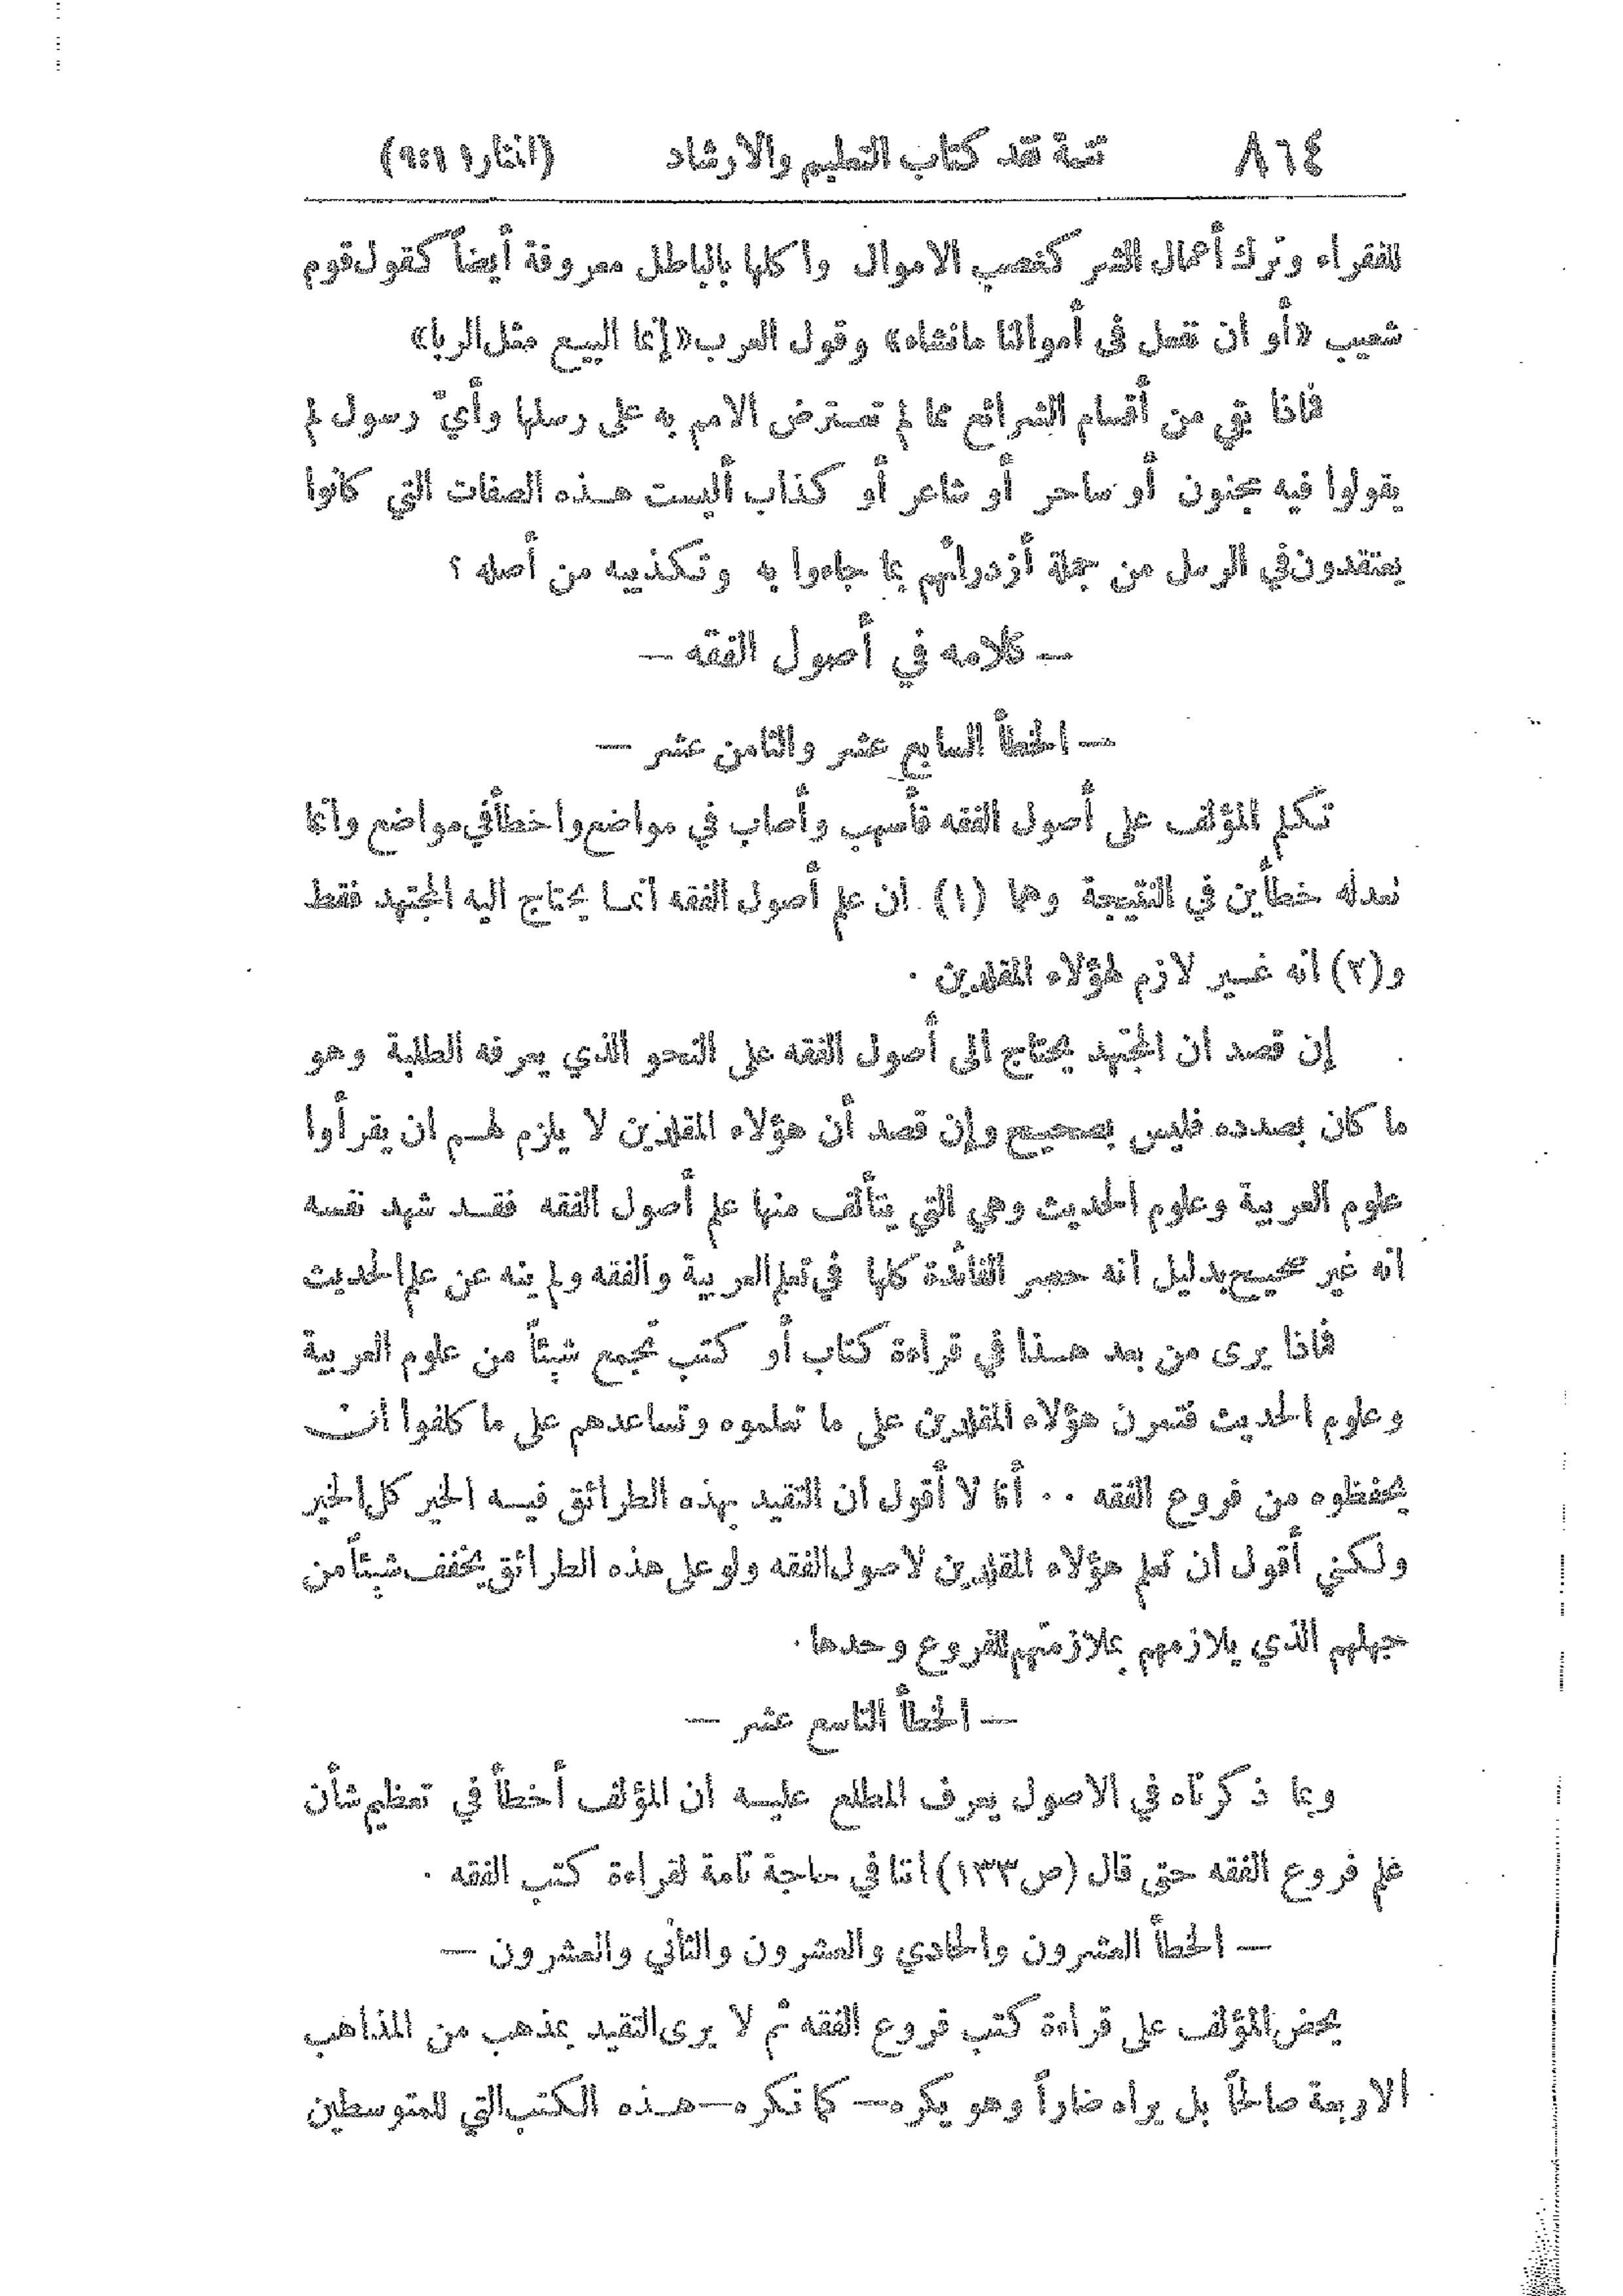 ٨٦٤ تتمة نقد كتاب التعليم والارشاد (المنار ١١ : ٩)
للفقراء وترك أعمال الشر كغصب الاموال واكلها بالباطل معروفة أيضاً كقول قوم
شعيب «أو ان نفعل في أموالنا ما نشاء» وقول العرب «إنما البيع مثل الربا»
فاذا بقي من أقسام الشرائع مما لم تعترض الامم به على رسلها وأيّ رسول لم
يقولوا فيه مجنون أو ساحر أو شاعر أو كذاب أليست هذه الصفات التي كانوا
يعتقدون في الرسل من جملة أزدرائهم بما جاءوا به وتكذيبه من أصله ؟
— كلامه في أصول الفقه —
— الخطأ السابع عشر والثامن عشر —
تكلم المؤلف على أصول الفقه فأسهب وأصاب في مواضع واخطأ في مواضع وانما
نعد له خطأين في النتيجة وهما (١) ان علم أصول الفقه انما يحتاج اليه المجتهد فقط
و(٢) انه غير لازم لهؤلاء المقلدين .
إن قصد ان المجتهد يحتاج الى أصول الفقه على النحو الذي يعرفه الطلبة وهو
ما كان بصدده فليس بصحيح وإن قصد أن هؤلاء المقلدين لا يلزم لهم ان يقرأوا
علوم العربية وعلوم الحديث وهي التي يتألف منها علم أصول الفقه فقد شهد نفسه
انه غير صحيح بدليل انه حصر الفائدة كلها في تعلم العربية والفقه ولم ينه عن علم الحديث
فاذا يرى من بعد هذا في قراءة كتاب أو كتب تجمع شيئاً من علوم العربية
وعلوم الحديث فتمرن هؤلاء المقلدين على ما تعلموه وتساعدهم على ما كلفوا ان
يحفظوه من فروع الفقه . . أنا لا أقول ان التقيد بهذه الطرائق فيه الخير كل الخير
ولكني أقول ان تعلم هؤلاء المقلدين لاصول الفقه ولو على هذه الطرائق يخفف شيئاً من
جهلهم الذي يلازمهم بملازمتهم للفروع وحدها .
— الخطأ التاسع عشر —
وبما ذكرناه في الاصول يعرف المطلع عليه ان المؤلف أخطأ في تعظيم شأن
علم فروع الفقه حتى قال (ص١٣٣) اننا في حاجة تامة لقراءة كتب الفقه .
— الخطأ العشرون والحادي والعشرون والثاني والعشرون —
يحض المؤلف على قراءة كتب فروع الفقه ثم لا يرى التقيد بمذهب من المذاهب
الاربعة صالحاً بل يراه ضاراً وهو يكره — كما تكره — هذه الكتب التي للمتوسطين